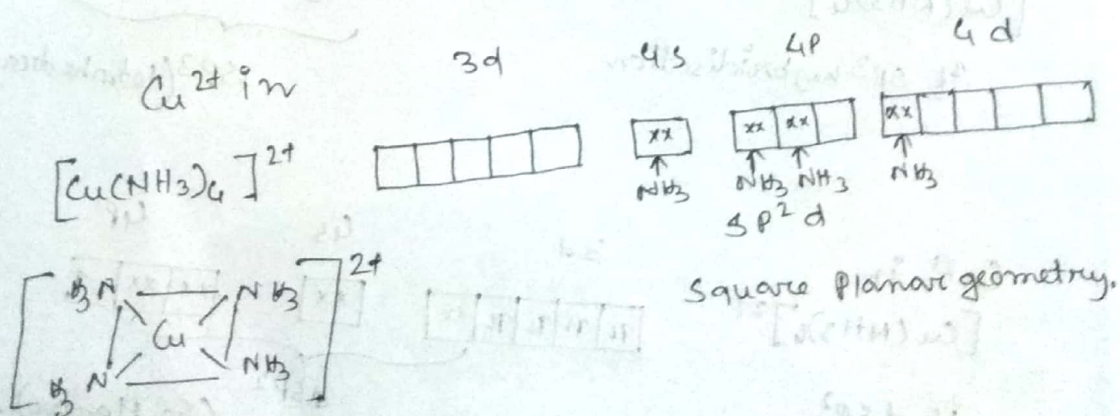 3d 4s 4p 4d
Cu2+ in
[Cu(NH3)4]2+
xx xx xx xx
NH3 NH3 NH3 NH3
sp2d
Square Planar geometry.
[ H3N NH3 ]2+
Cu
H3N NH3